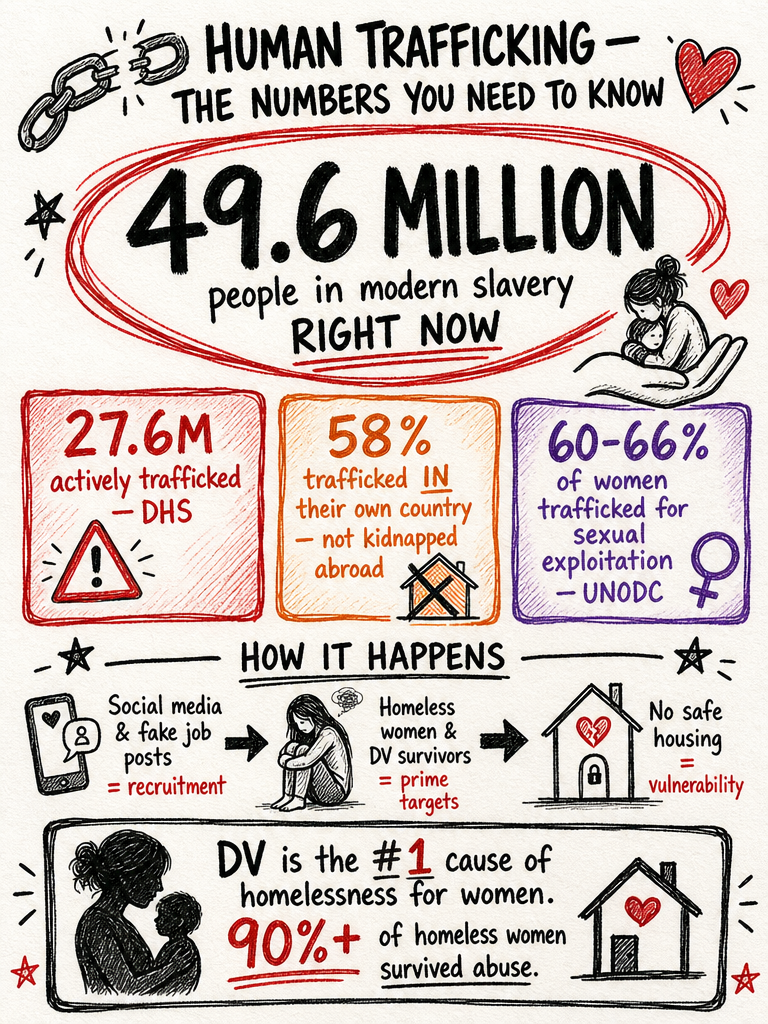 HUMAN TRAFFICKING —
THE NUMBERS YOU NEED TO KNOW
49.6 MILLION
people in modern slavery
RIGHT NOW
27.6M
actively trafficked
— DHS
58%
trafficked IN
their own country
— not kidnapped
abroad
60-66%
of women
trafficked for
sexual
exploitation
— UNODC
HOW IT HAPPENS
Social media
& fake job
posts
= recruitment
Homeless
women &
DV survivors
= prime
targets
No safe
housing
=
vulnerability
DV is the #1 cause of
homelessness for women.
90%+ of homeless women
survived abuse.